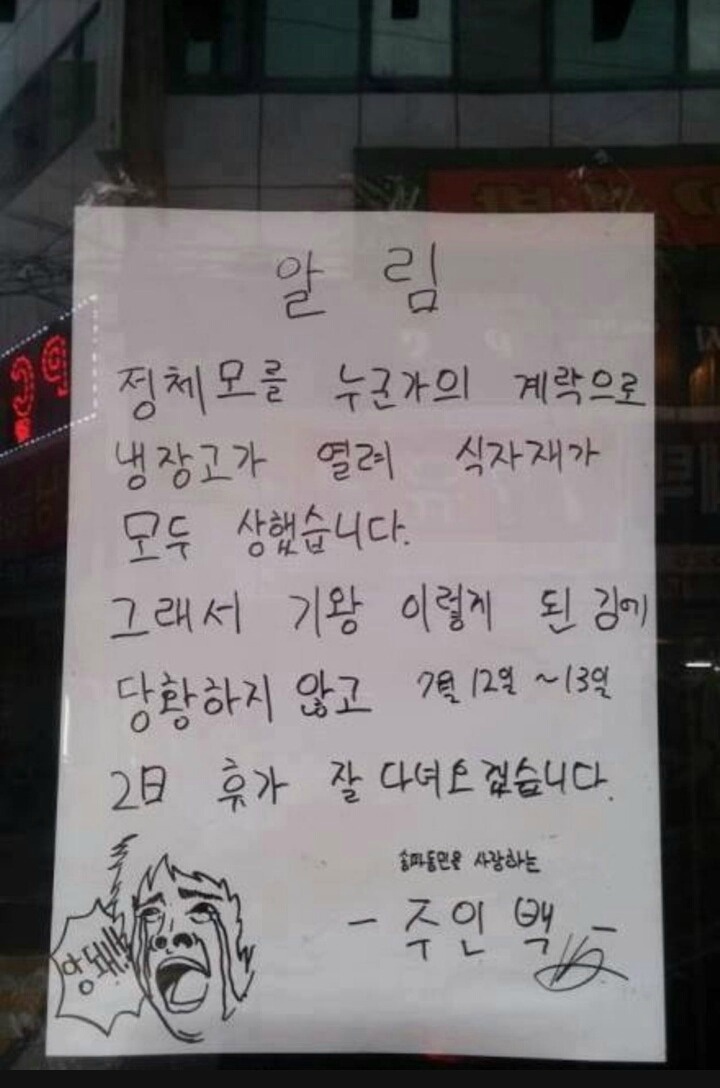 알 림
정체모를 누군가의 계락으로
냉장고가 열려 식자재가
모두 상했습니다.
그래서 기왕 이렇게 된 김에
당황하지 않고 7월 12일 ~13일
2日 휴가 잘 다녀오겠습니다.
송파동민을 사랑하는
- 주인 백 -
앙돼!!
39